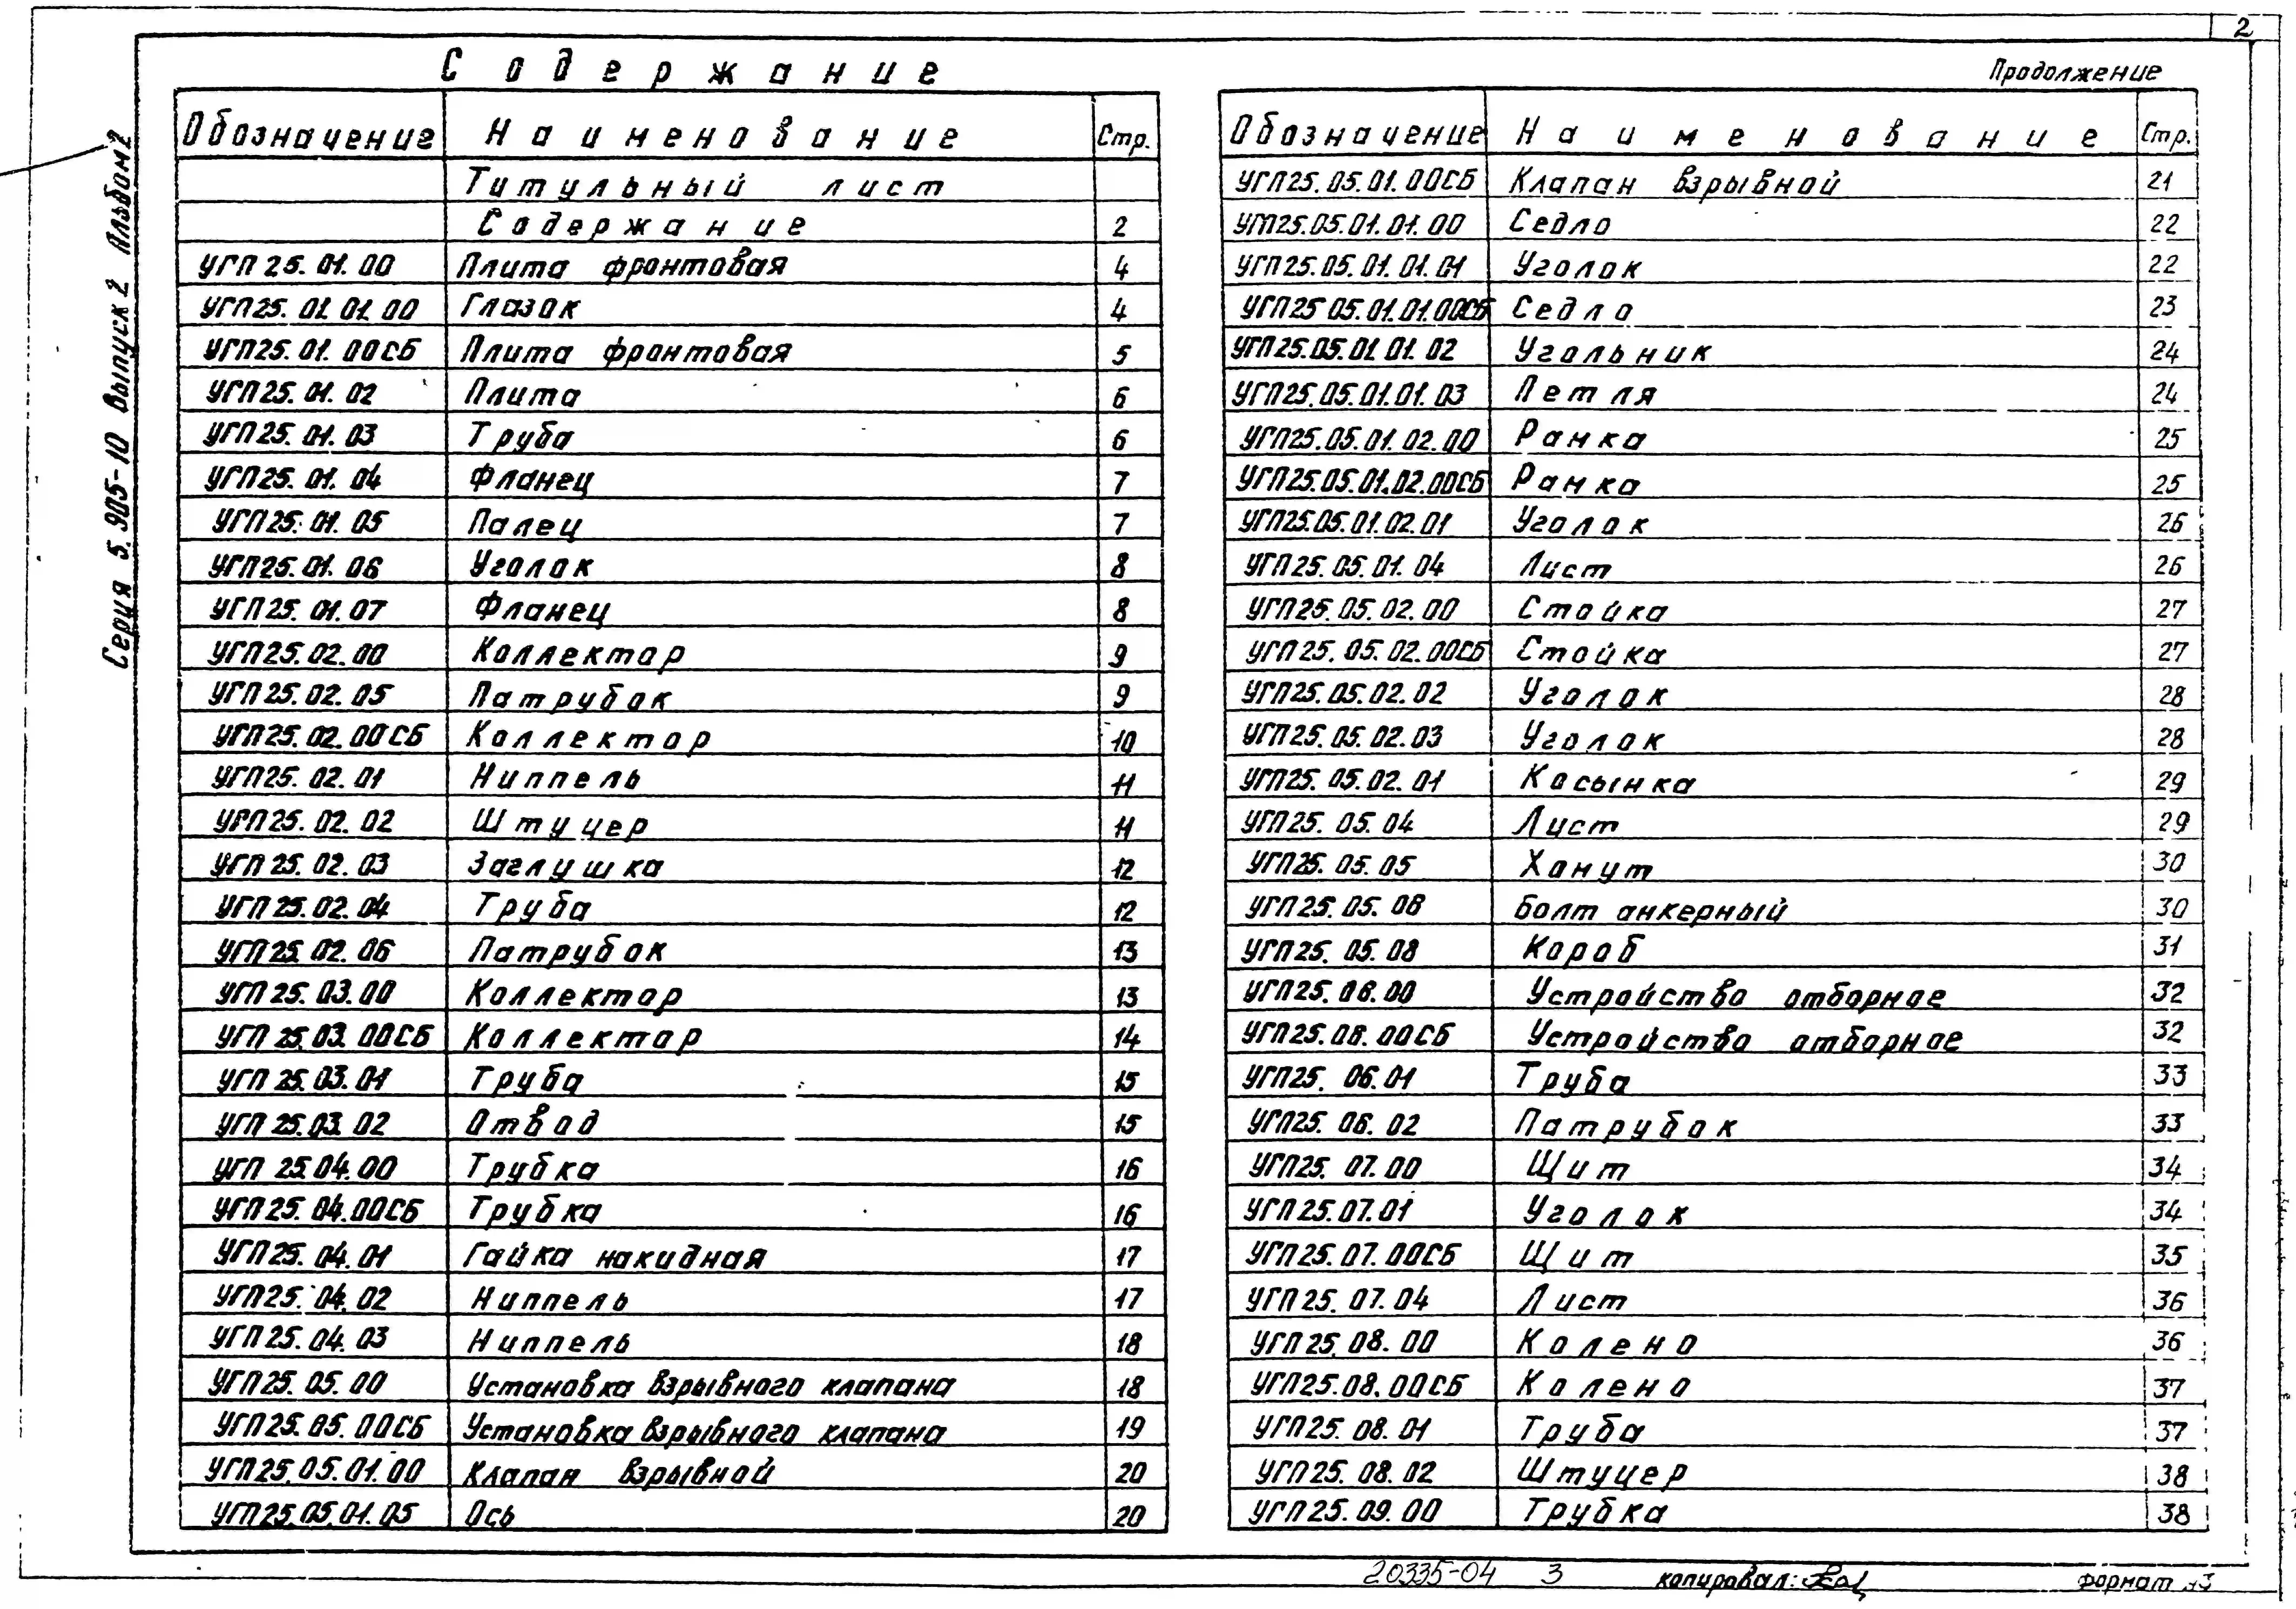 2
Серия 5.905-10 Выпуск 2 Альбом 2
Содержание
Обозначение Наименование Стр.
Титульный лист
Содержание 2
УГП25.01.00 Плита фронтовая 4
УГП25.01.01.00 Глазок 4
УГП25.01.00СБ Плита фронтовая 5
УГП25.01.02 Плита 6
УГП25.01.03 Труба 6
УГП25.01.04 Фланец 7
УГП25.01.05 Палец 7
УГП25.01.06 Уголок 8
УГП25.01.07 Фланец 8
УГП25.02.00 Коллектор 9
УГП25.02.05 Патрубок 9
УГП25.02.00СБ Коллектор 10
УГП25.02.01 Ниппель 11
УГП25.02.02 Штуцер 11
УГП25.02.03 Заглушка 12
УГП25.02.04 Труба 12
УГП25.02.06 Патрубок 13
УГП25.03.00 Коллектор 13
УГП25.03.00СБ Коллектор 14
УГП25.03.01 Труба 15
УГП25.03.02 Отвод 15
УГП25.04.00 Трубка 16
УГП25.04.00СБ Трубка 16
УГП25.04.01 Гайка накидная 17
УГП25.04.02 Ниппель 17
УГП25.04.03 Ниппель 18
УГП25.05.00 Установка взрывного клапана 18
УГП25.05.00СБ Установка взрывного клапана 19
УГП25.05.01.00 Клапан взрывной 20
УГП25.05.01.05 Ось 20
Продолжение
Обозначение Наименование Стр.
УГП25.05.01.00СБ Клапан взрывной 21
УГП25.05.01.01.00 Седло 22
УГП25.05.01.01.01 Уголок 22
УГП25.05.01.01.00СБ Седло 23
УГП25.05.01.01.02 Угольник 24
УГП25.05.01.01.03 Петля 24
УГП25.05.01.02.00 Рамка 25
УГП25.05.01.02.00СБ Рамка 25
УГП25.05.01.02.01 Уголок 26
УГП25.05.01.04 Лист 26
УГП25.05.02.00 Стойка 27
УГП25.05.02.00СБ Стойка 27
УГП25.05.02.02 Уголок 28
УГП25.05.02.03 Уголок 28
УГП25.05.02.01 Косынка 29
УГП25.05.04 Лист 29
УГП25.05.05 Хомут 30
УГП25.05.06 Болт анкерный 30
УГП25.05.08 Короб 31
УГП25.06.00 Устройство отборное 32
УГП25.06.00СБ Устройство отборное 32
УГП25.06.01 Труба 33
УГП25.06.02 Патрубок 33
УГП25.07.00 Щит 34
УГП25.07.01 Уголок 34
УГП25.07.00СБ Щит 35
УГП25.07.04 Лист 36
УГП25.08.00 Колено 36
УГП25.08.00СБ Колено 37
УГП25.08.01 Труба 37
УГП25.08.02 Штуцер 38
УГП25.09.00 Трубка 38
20335-04 3 копировал: формат